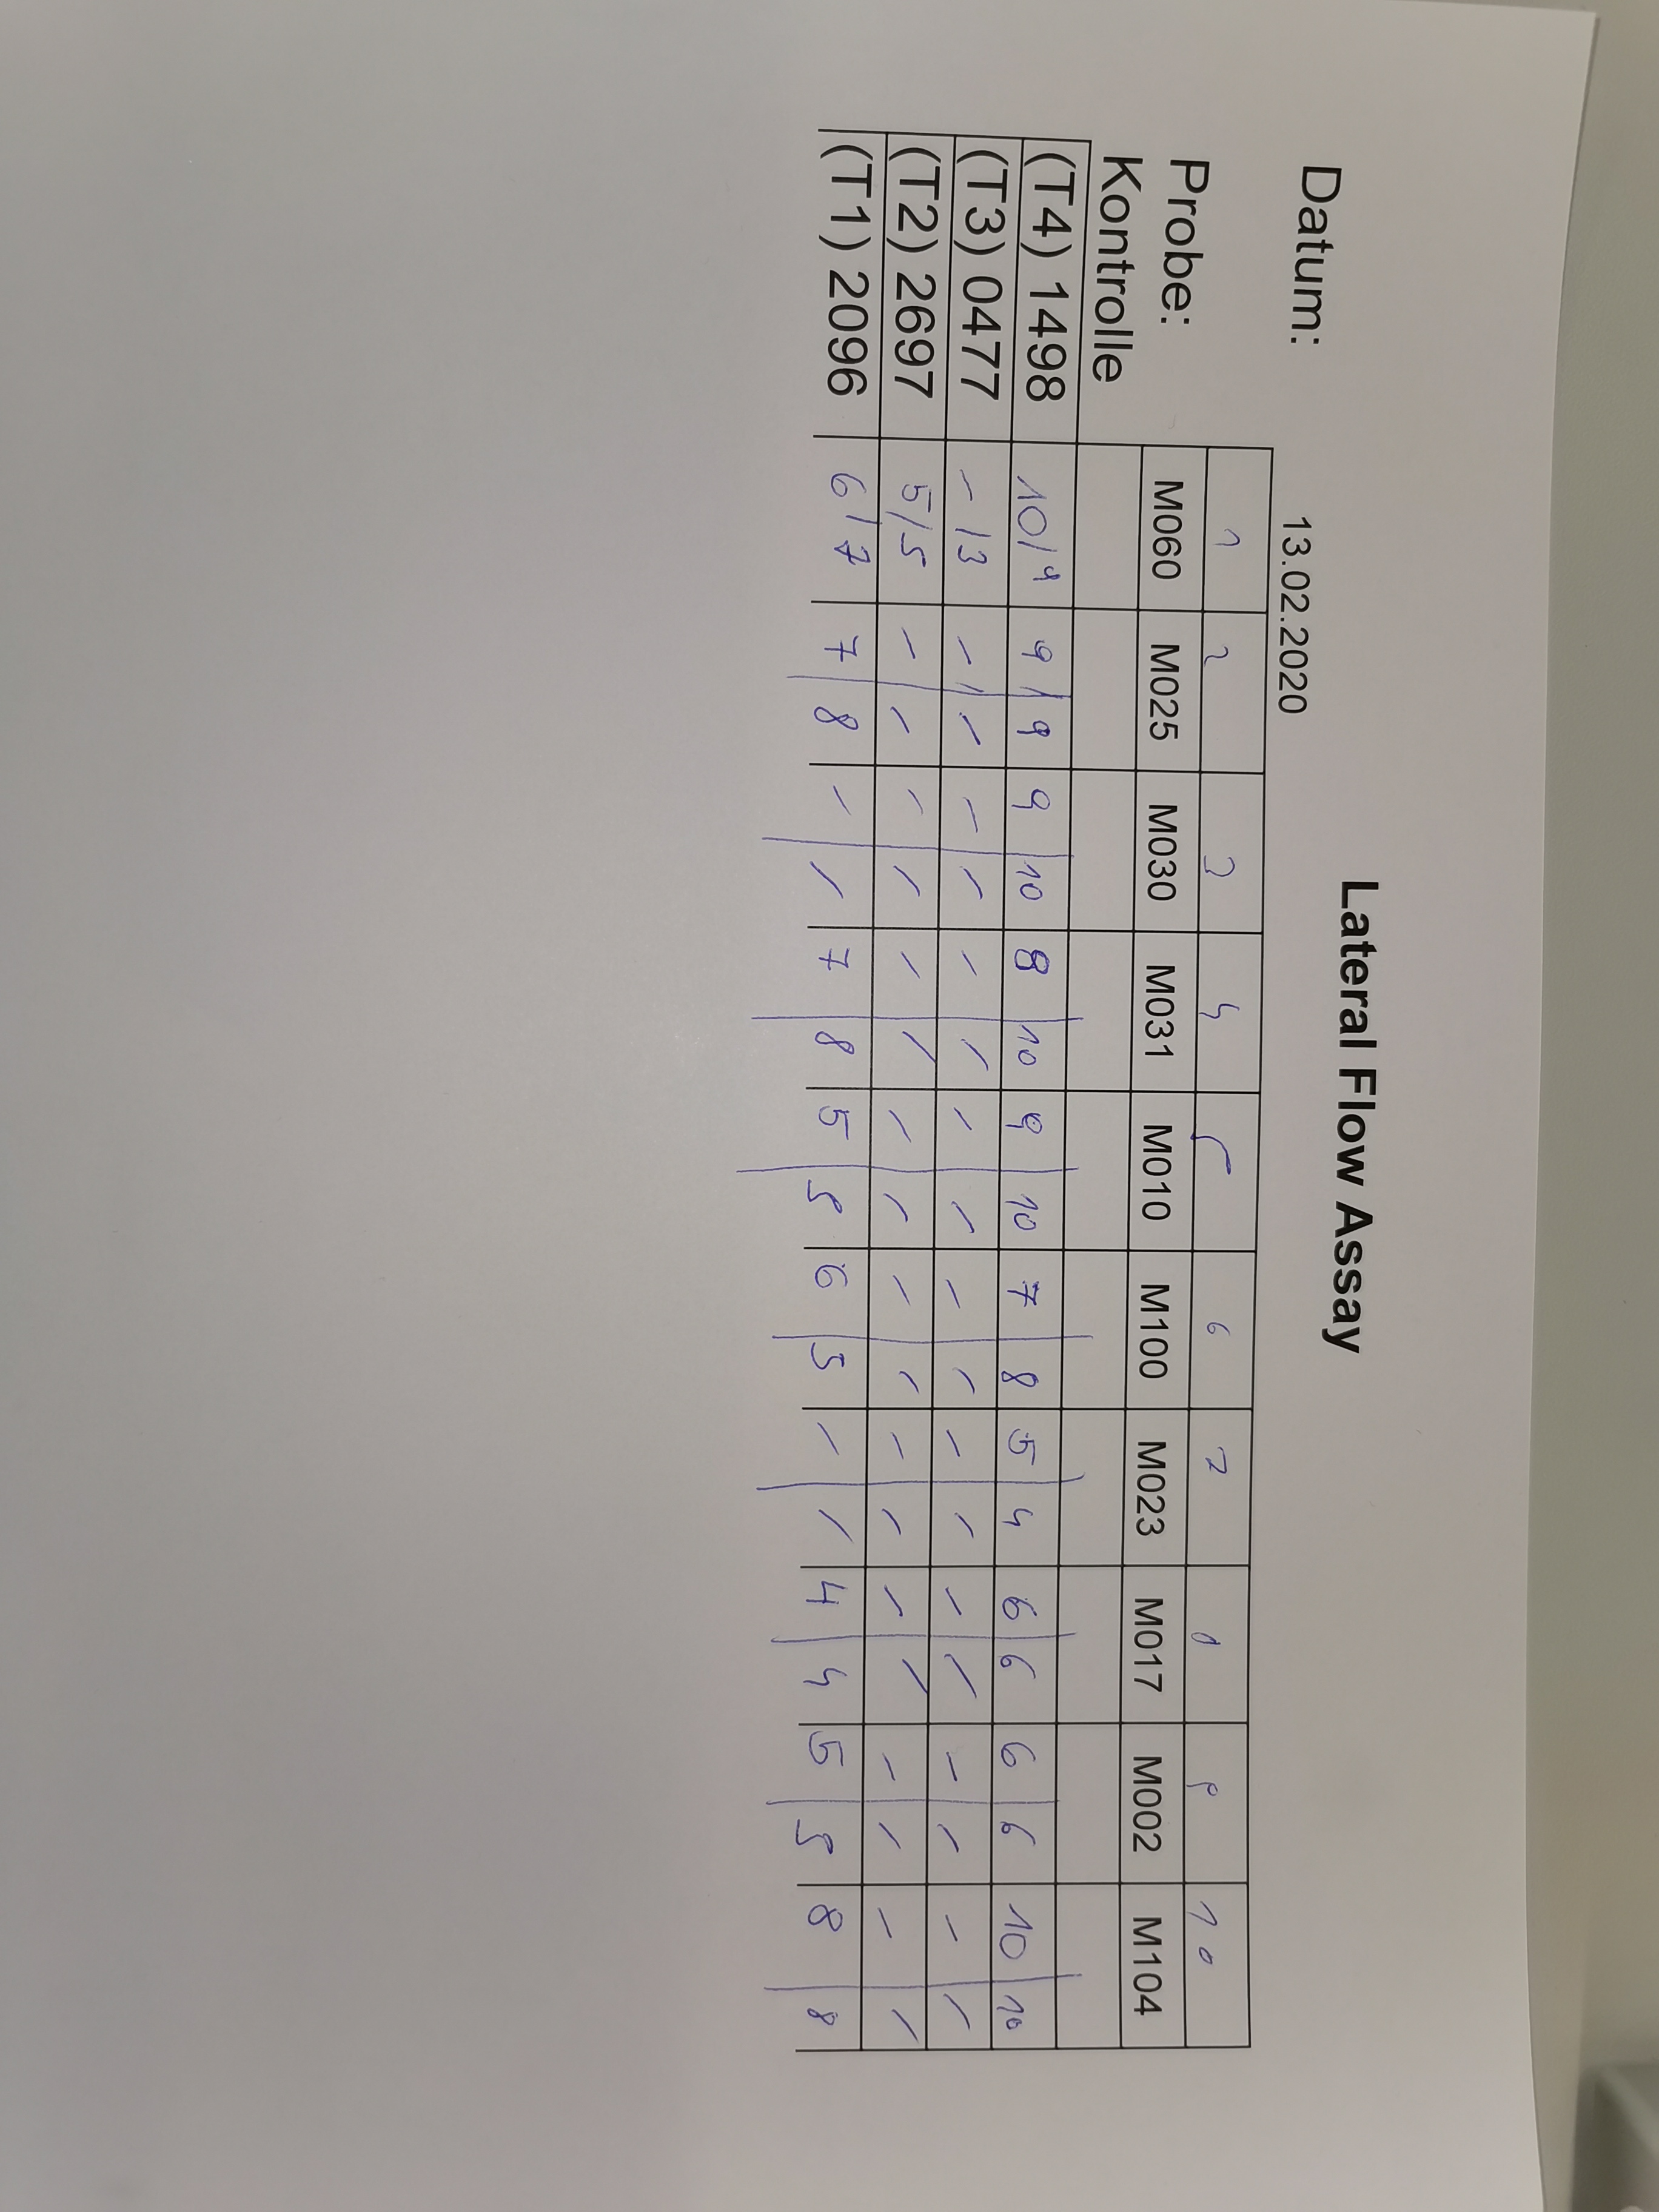 Lateral Flow Assay
Datum: 13.02.2020
1 2 3 4 5 6 7 8 9 10
Probe: M060 M025 M030 M031 M010 M100 M023 M017 M002 M104
Kontrolle
(T4) 1498 10/9 9/9 9|10 8|10 9|10 7|8 5|4 6|6 6|6 10|10
(T3) 0477 -/3 -/- -|- -|- -|- -|- -|- -|- -|- -|-
(T2) 2697 5/5 -|- -|- -|- -|- -|- -|- -|- -|- -|-
(T1) 2096 6/7 7|8 -|- 7|8 5|5 6|5 -|- 4|4 5|5 8|8